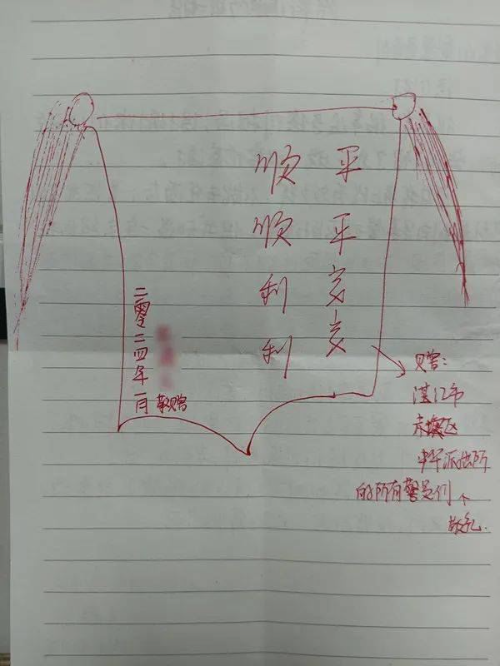 平平安安
顺顺利利
二零二四年一月
敬赠
赠:
湛江市
赤坎区
派出所
的所有警员们个
敬礼